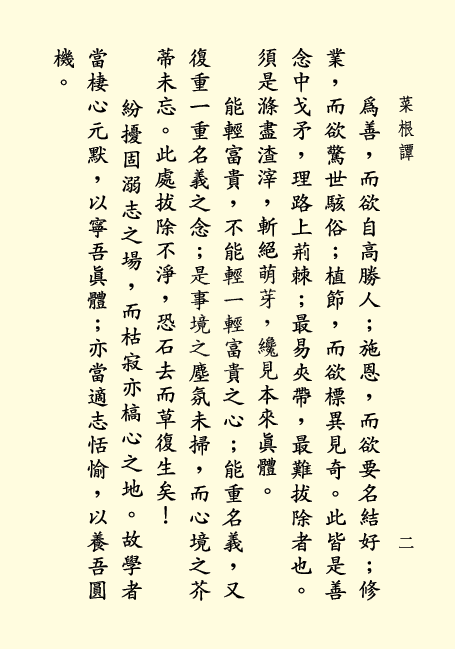 菜根譚
二
為善，而欲自高勝人；施恩，而欲要名結好；修
業，而欲驚世駭俗；植節，而欲標異見奇。此皆是善
念中戈矛，理路上荊棘；最易夾帶，最難拔除者也。
須是滌盡渣滓，斬絕萌芽，纔見本來真體。
能輕富貴，不能輕一輕富貴之心；能重名義，又
復重一重名義之念；是事境之塵氛未掃，而心境之芥
蒂未忘。此處拔除不淨，恐石去而草復生矣！
紛擾固溺志之場，而枯寂亦槁心之地。故學者
當棲心元默，以寧吾真體；亦當適志恬愉，以養吾圓
機。